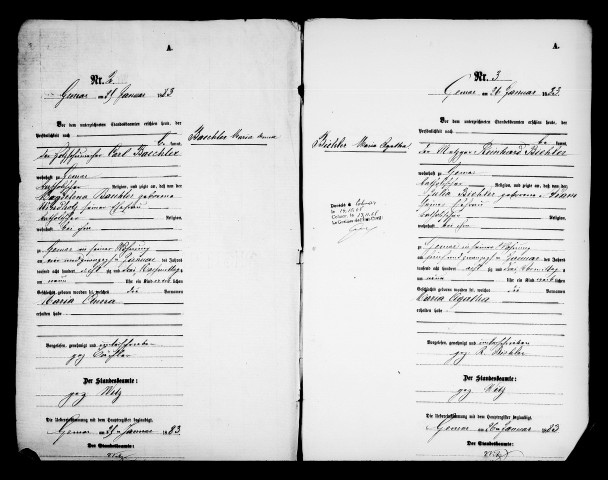 A.
Nr. 2.
Gemar am 21 Januar 1883
Vor dem unterzeichneten Standesbeamten erschien heute, der
Persönlichkeit nach
kannt,
der Holzschuhmacher Carl Baechler
wohnhaft zu Gemar
katholischer Religion, und zeigte an, daß von der
Magdalena Baechler geborene
seiner Ehefrau
katholischer Religion,
wohnhaft bei ihm
zu Gemar in seiner Wohnung
am ein und zwanzigsten Januar des Jahres
tausend acht hundert achtzig und drei Vormittag
um neun Uhr ein Kind weiblichen
Geschlechts geboren worden sei, welches die Vornamen
Maria Anna
erhalten habe
Vorgelesen, genehmigt und unterschrieben
gez Bächler
Der Standesbeamte:
gez Metz
Die Uebereinstimmung mit dem Hauptregister beglaubigt.
Gemar am 21 Januar 1883
Der Standesbeamte
Metz
Baechler Maria Anna
A.
Nr. 3
Gemar am 26 Januar 1883.
Vor dem unterzeichneten Standesbeamten erschien heute, der
Persönlichkeit nach
kannt,
der Metzger Reinhard Biechler
wohnhaft zu Gemar
katholischer Religion, und zeigte an, daß von der
Julia Biechler geborene
seiner Ehefrau
katholischer Religion,
wohnhaft bei ihm
zu Gemar in seiner Wohnung
am fünf und zwanzigsten Januar des Jahres
tausend acht hundert achtzig und drei Abends
um neun Uhr ein Kind weiblichen
Geschlechts geboren worden sei, welches die Vornamen
Maria Agatha
erhalten habe
Vorgelesen, genehmigt und unterschrieben
gez R. Biechler
Der Standesbeamte:
gez Metz
Die Uebereinstimmung mit dem Hauptregister beglaubigt.
Gemar am 26 Januar 1883
Der Standesbeamte
Metz
Biechler Maria Agatha
Décédée à Colmar
le
Colmar, le